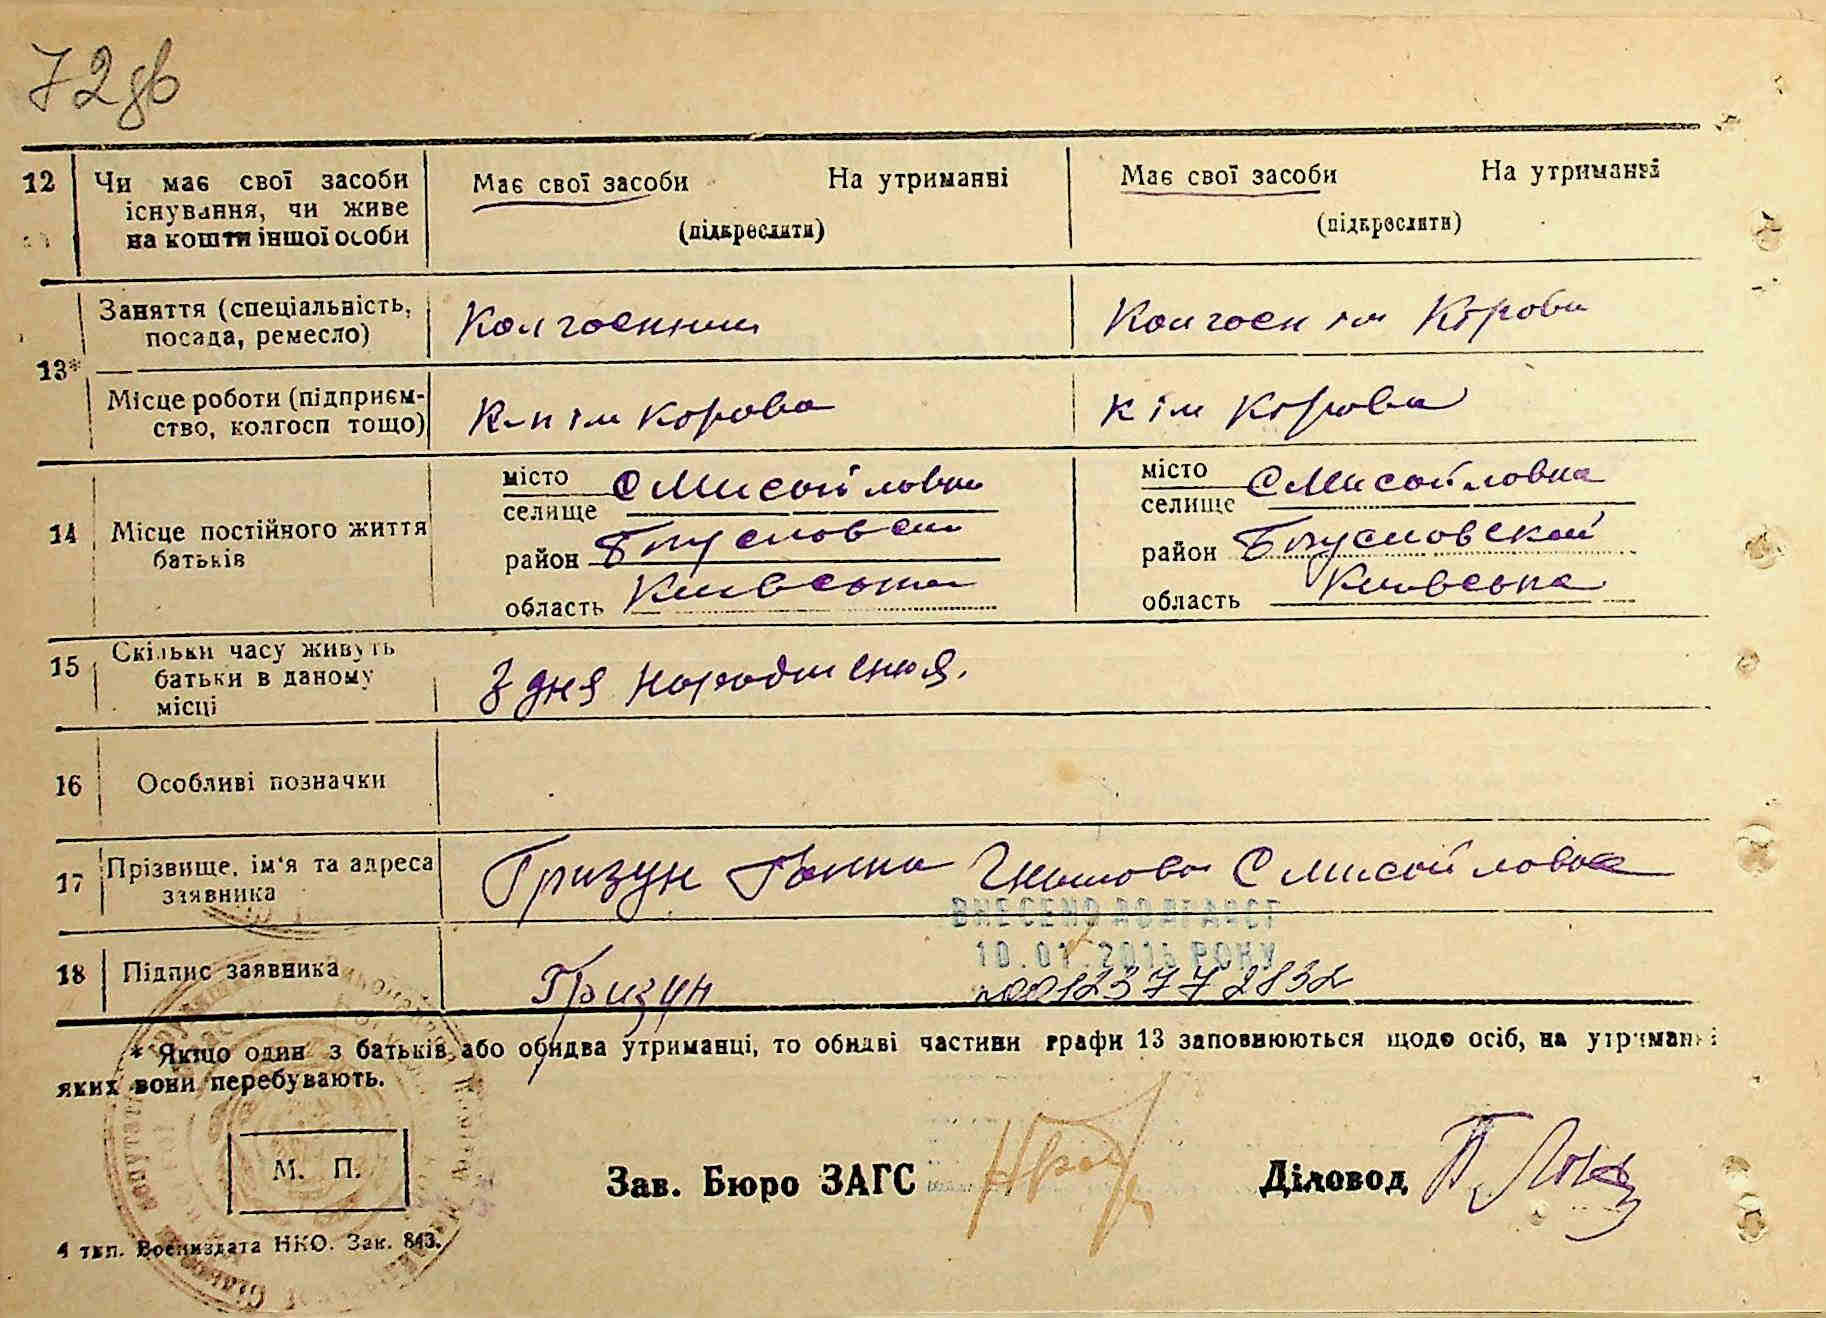 72 зв
12 Чи має свої засоби існування, чи живе на кошти іншої особи
Має свої засоби На утриманні
(підкреслити)
Має свої засоби На утриманні
(підкреслити)
13*
Заняття (спеціальність, посада, ремесло)
Колгоспник
Колгосп ім Кірова
Місце роботи (підприємство, колгосп тощо)
К-п ім Корова
К ім Кірова
14 Місце постійного життя батьків
місто
селище С Мисайловка
район Богусловский
область Київська
місто
селище С Мисайловка
район Богусловской
область Київська
15 Скільки часу живуть батьки в даному місці
З дня народження.
16 Особливі позначки
17 Прізвище, ім'я та адреса заявника
Гризун Ганна Гнатовна С Мисайловка
ВНЕСЕНО ДО ДРАЦСГ
10.01.2015 РОКУ
18 Підпис заявника
Гризун
00123772832
* Якщо один з батьків або обидва утриманці, то обидві частини графи 13 заповнюються щодо осіб, на утриманні
яких вони перебувають.
М. П.
Зав. Бюро ЗАГС
Діловод
4 тип. Воениздата НКО. Зак. 843.